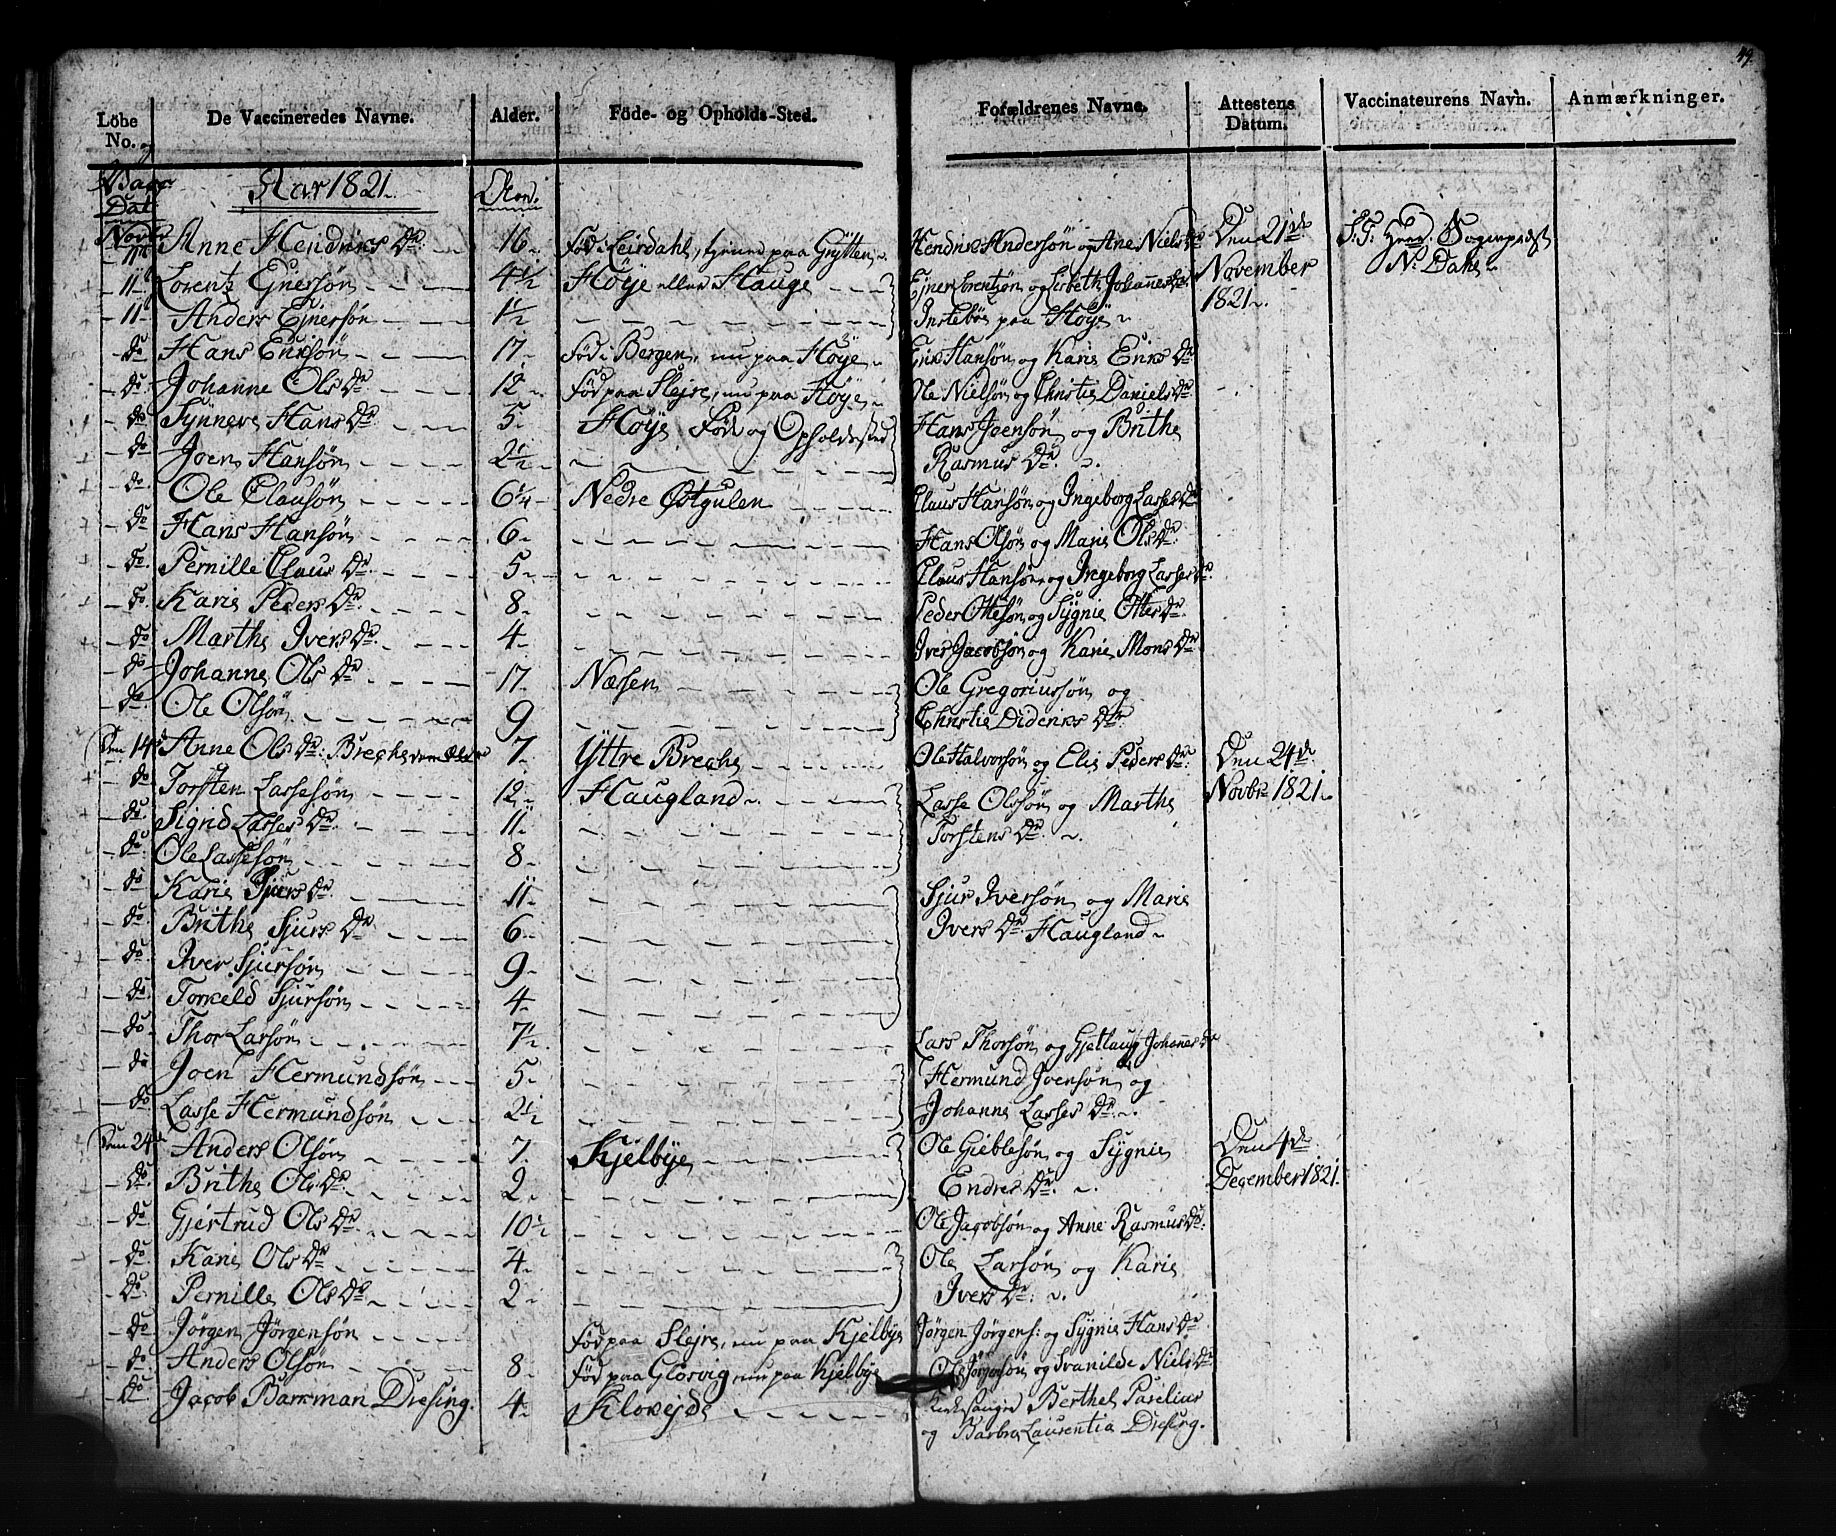 49.
Löbe No. De Vaccineredes Navne. Alder. Föde- og Opholds-Sted. Forældrenes Navne. Attestens Datum. Vaccinateurens Navn. Anmærkninger.
Dat Aar 1821. Aar.
Novbr 11te Anne Hendriks Dr: 16 Föd i Leirdahl, tjenende paa Grytten Hendrik Andersön og Ane Niels Dr Den 21de S: T: Herr Sogneprest
11 Lorentz Ejnersön 4 1/2 Höÿe eller Hauge Ejner Lorentzön og Lisbeth Johannes Dr. November N: Dahl
11 Anders Ejnersön 1 1/2 Instebön paa Höÿe 1821.
do Hans Eriksön 17 Föd i Bergen, nu paa Höÿe Erik Hansön og Karie Eriks Dr
do Johanne Ols Dr 12 Föd paa Slejre, nu paa Höÿe Ole Nielsön og Christie Daniels Dr.
do Synneve Hans Dr. 5 Höÿe Föde og Opholdssted Hans Joensön og Brithe
do Joen Hansön 2 1/2 Rasmus Dr.
do Ole Clausön 6 1/4 Nedre Østgulen Claus Hansön og Ingeborg Lasses Dr
do Hans Hansön 6 Hans Olsön og Marie Ols Dr.
do Pernille Claus Dr. 5 Claus Hansön og Ingeborg Lasses Dr.
do Karie Peders Dr. 8 Peder Ottesön og Sygnie Ottes Dr.
do Marthe Ivers Dr 4 Iver Jacobsön og Karie Mons Dr
do Johanne Ols Dr 17 Næssen Ole Gregoriussön og
do Ole Olsön 9 Christie Dideriks Dr.
Den 14de Anne Ols Dr: Breche 7 Yttre Breche Ole Halvorsön og Elie Peders Dr. Den 24de
do Torsten Lassesön 12 Haugland Lasse Olssön og Marthe Novbr 1821.
do Sigrid Lasses Dr. 11 Torstens Dr.
do Ole Lassesön 8
do Karie Sjurs Dr. 11 Sjur Iversön og Marie
do Brithe Sjurs Dr 6 Ivers Dr. Haugland
do Iver Sjursön 9
do Torkeld Sjursön 4
do Thor Larsön 7 1/2 Lars Thorsön og Gjetlaug Johannes Dr
do Joen Hermundsön 5 Hermund Joensön og
do Lasse Hermundsön 2 1/2 Johanne Lasses Dr.
Den 24de Anders Olsön 7 Kjelbÿe Ole Gieblesön og Sygnie Den 4de
do Brithe Ols Dr. 2 Endres Dr. December 1821.
do Gjertrud Ols Dr. 10 1/2 Ole Jacobsön og Anne Rasmus Dr.
do Karie Ols Dr 4 Ole Larsön og Karie
do Pernille Ols Dr 2 Ivers Dr.
do Jörgen Jörgensön Föd paa Slejre, nu paa Kjelbÿe Jörgen Jörgens: og Sygnie Hans Dr.
do Anders Olsön 8 Föd paa Glosvig nu paa Kjelbÿe Ole Jörgensön og Svanilde Niels Dr
do Jacob Barkman Dresing. 4 Klovejde Kirkesanger Berthel Paselius
og Barbra Laurentia Dresing.